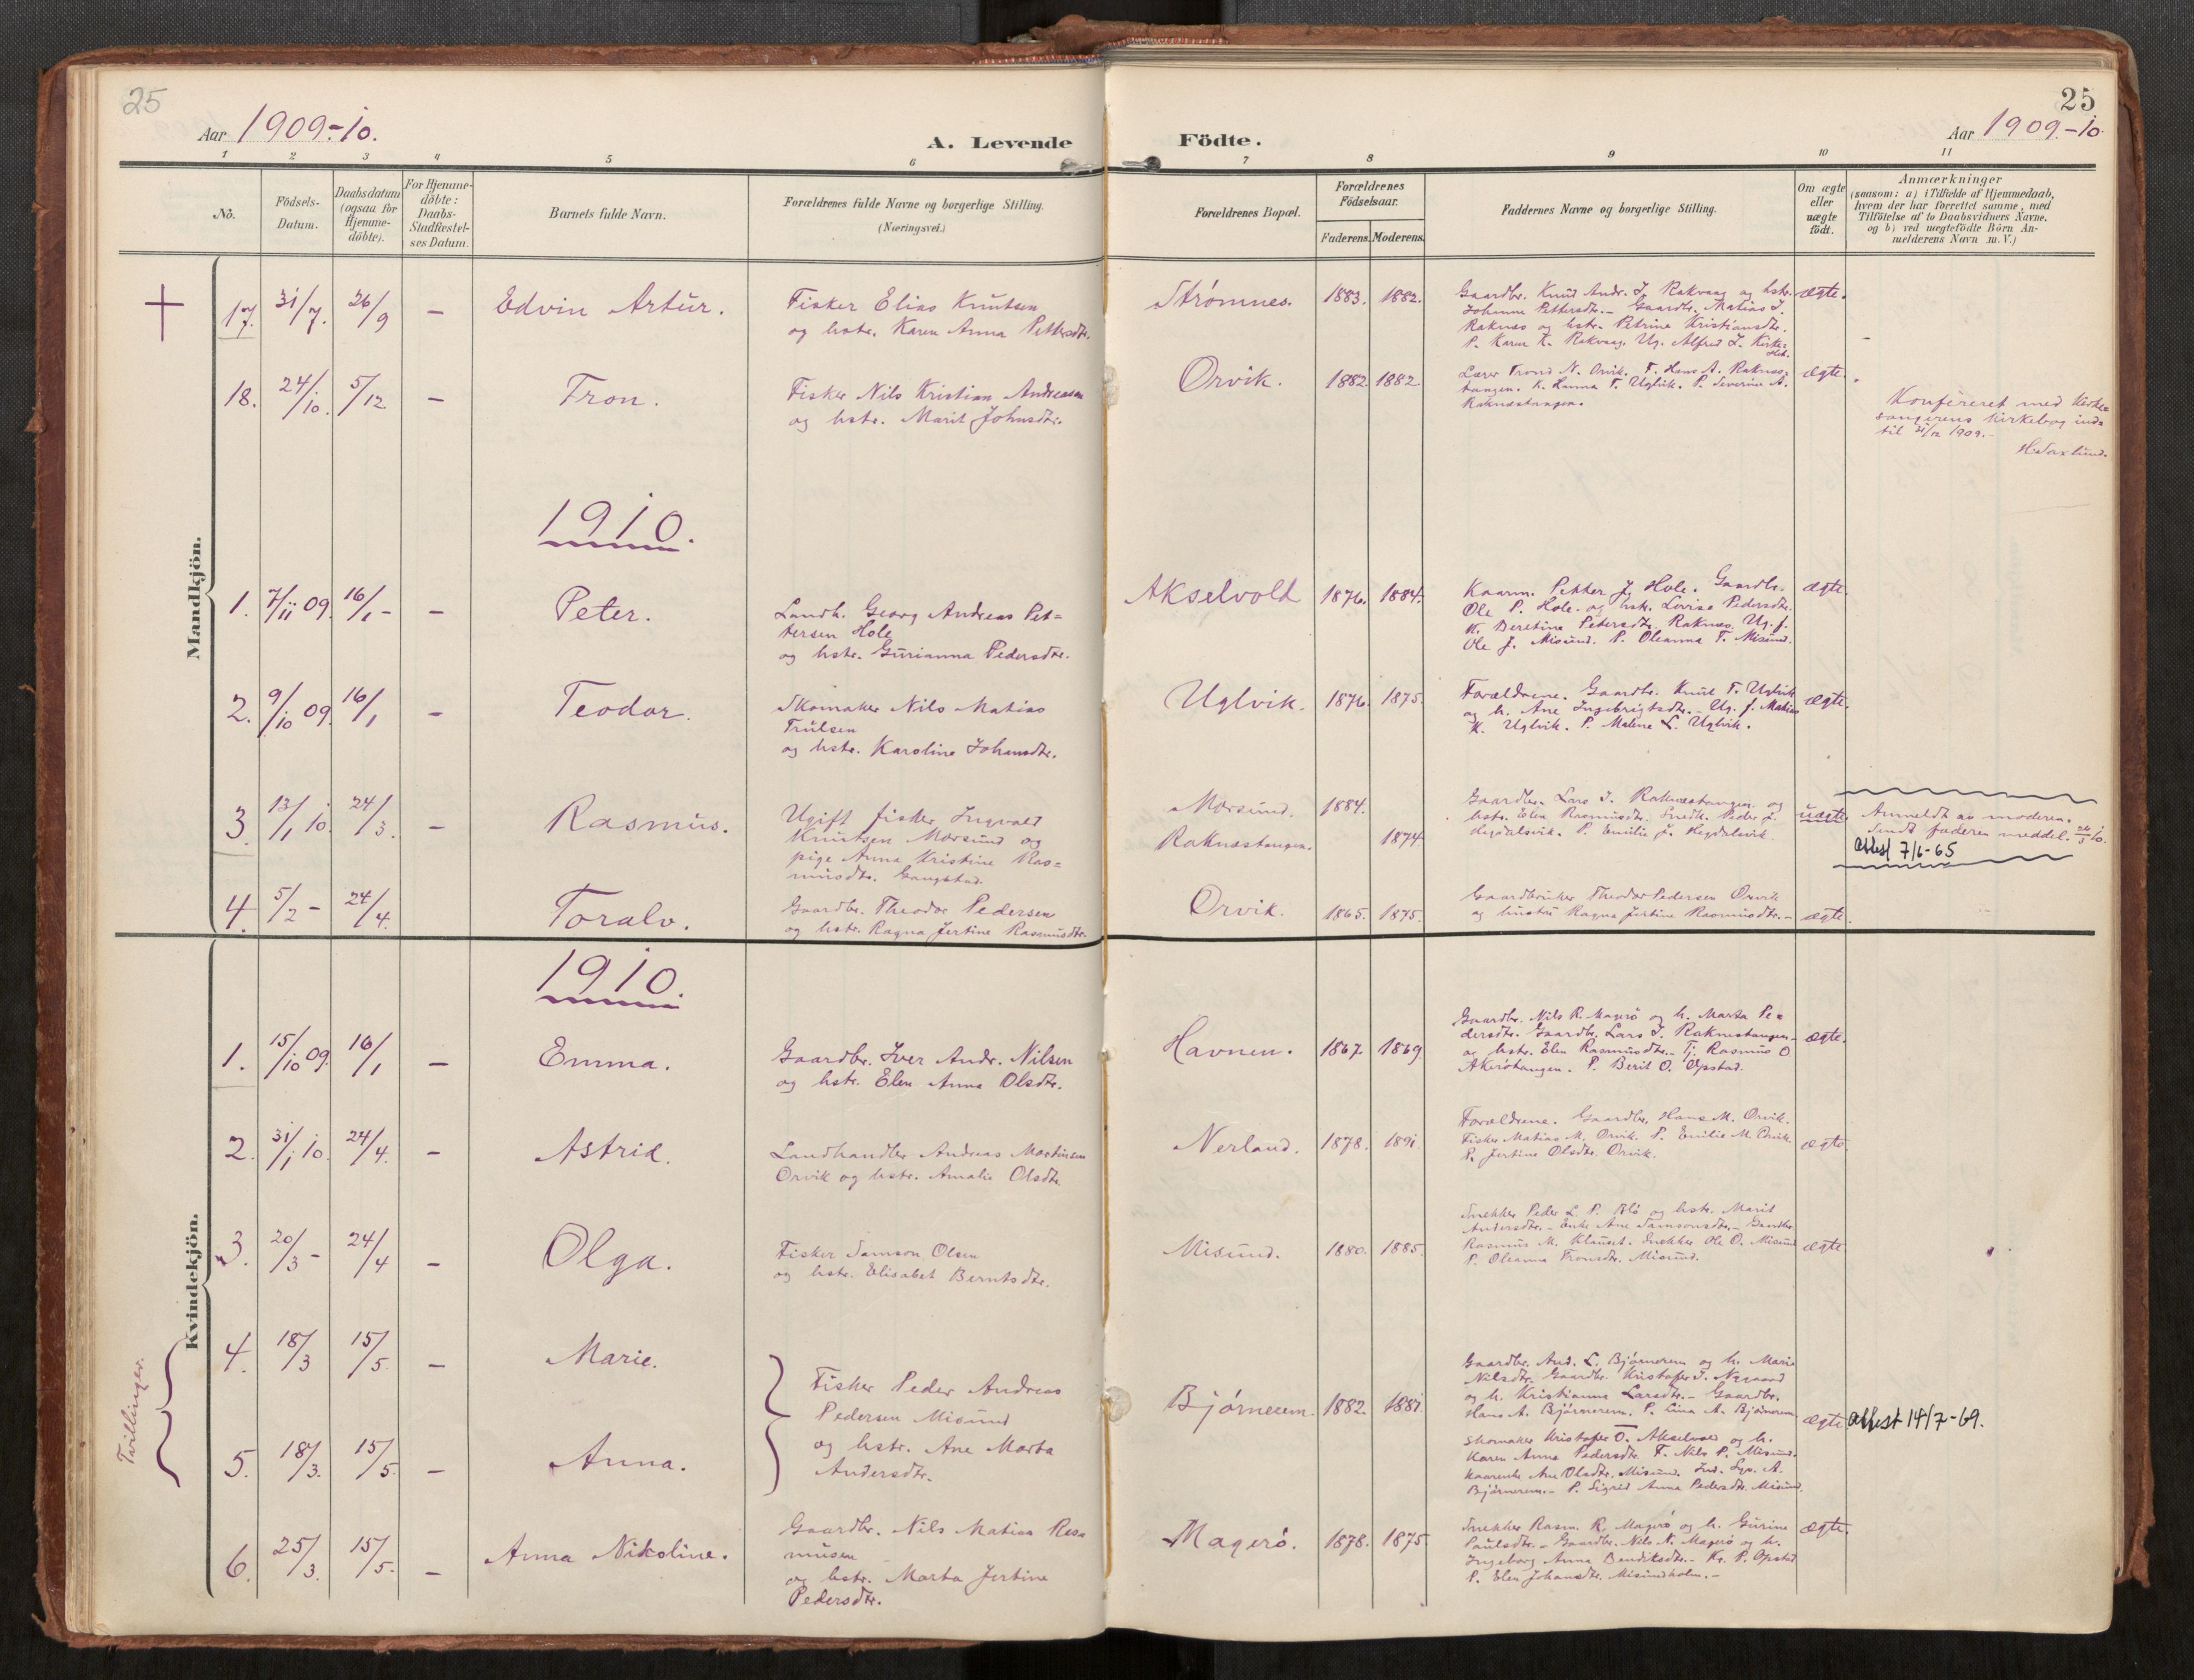 25
Aar 1909.-10.
A. Levende
Födte.
25
Aar 1909.-10.
1 2 3 4 5 6 7 8 9 10 11
No.
Födsels-
Datum.
Daabsdatum
(ogsaa for
Hjemme-
döbte).
For Hjemme-
döbte:
Daabs-
Stadfæstel-
ses Datum.
Barnets fulde Navn.
Forældrenes fulde Navne og borgerlige Stilling.
(Næringsvei.)
Forældrenes Bopæl.
Forældrenes
Födselsaar.
Faderens. Moderens.
Faddernes Navne og borgerlige Stilling.
Om ægte
eller
uægte
födt.
Anmærkninger
(saasom: a) i Tilfælde af Hjemmedaab,
hvem der har forrettet samme, med
Tilföielse af to Daabsvidners Navne,
og b) ved uægtefödte Börn An-
melderens Navn m. V.)
Mandkjön.
17. 31/7. 26/9 - Edvin Artur.
Fisker Elias Knutsen
og hstr. Karen Anna Pettersdtr.
Strømnes. 1883. 1882.
Gaardbr. Knud Andr. J. Rakvaag og hstr.
Johanne Pettersdtr. - Gaardbr. Matias J.
Raknes og hstr. Petrine Kristiansdtr.
P. Karen K. Rakvaag. Ug. Alfred J.
ægte.
18. 24/10. 5/12 - Tron.
Fisker Nils Kristian Andreassen
og hstr. Marit Johnsdtr.
Orvik. 1882 1882
Lærer Trond N. Orvik. F. Hans A. Raknes-
tangen. K. Hanna T. Uglvik. P. Severine A.
Raknestangen.
ægte.
Konfereret med Kirke-
sangerens kirkebog ind-
til 31/12 1909.-
H. Saxlund.
1910.
1. 7/11 09. 16/1 - - Peter.
Landh. Georg Andreas Pet-
tersen Hole
og hstr. Gurianna Pedersdtr.
Akselvold 1876. 1884.
Kaarm. Petter J. Hole. Gaardbr.
Ole P. Hole og hstr. Lovise Pedersdtr.
K. Beretine Petersdtr. Raknes. Ug. f.
Ole J. Misund. P. Oleanna T. Misund.
ægte.
2. 9/10 09. 16/1 - Teodor.
Skomaker Nils Matias
Trulsen
og hstr. Karoline Johansdtr.
Uglvik. 1876. 1875.
Forældrene. Gaardbr. Knut T. Uglvik
og h. Ane Ingebrigtsdtr. - Ug. f. Matias
K. Uglvik. P. Malene L. Uglvik.
ægte.
3. 13/1 10. 24/3. - Rasmus.
Ugift fisker Ingvald
Knutsen Morsund og
pige Anna Kristine Ras-
musdtr. Gangstad.
Morsund. 1884.
Raknæstangen. 1874.
Gaardbr. Lars J. Raknestangen og
hstr. Elen Rasmusdtr. Snedk. Peder J.
Hegdalsvik. P. Emilie J. Hegdalsvik.
uægte.
Anmeldt av moderen.
Sendt faderen meddel. 26/5 10.
attest 7/6-65
4. 5/2 - 24/4. Toralv.
Gaardbr. Theodor Pedersen
og hstr. Ragna Jertine Rasmusdtr.
Orvik. 1865. 1875.
Gaardbruker Theodor Pedersen Orvik
og hustru Ragna Jertine Rasmusdtr. -
ægte.
Kvindekjön.
1910.
1. 15/10 09. 16/1 - Emma.
Gaardbr. Iver Andr. Nilsen
og hstr. Elen Anna Olsdtr.
Havnen. 1867. 1869
Gaardbr. Nils R. Magerö og h. Marta Pe-
dersdtr. Gaardbr. Lars J. Raknestangen
og hstr. Elen Rasmusdtr. - Tj. Rasmus O
Akerötangen. P. Berit O. Opstad.
ægte.
2. 31/1 10. 24/4. - Astrid.
Landhandler Andreas Martinsen
Orvik og hstr. Amalie Olsdtr.
Nerland. 1878. 1891.
Forældrene. Gaardbr. Hans M. Orvik.
Fisker Matias M. Orvik. P. Emilie M. Orvik.
P. Jertine Olsdtr. Orvik.
ægte.
3. 20/3 - 24/4 - Olga.
Fisker Samson Olsen
og hstr. Elisabet Berntsdtr.
Misund. 1880. 1885.
Snekker Peder L. P. Blö og hstr. Marit
Andersdtr. - Enke Ane Samsonsdtr. - Gaardbr.
Rasmus M. Klauset. Snekker Ole O. Misund
P. Oleanna Tronsdtr. Misund.
ægte.
Tvillinger.
4. 18/3 15/5. - Marie.
5. 18/3. 15/5. - Anna.
Fisker Peder Andreas
Pedersen Misund
og hstr. Ane Marta
Andersdtr.
Bjørnerem. 1882. 1881.
Gaardbr. And. L. Bjørnerem og h. Marie
Nilsdtr. Gaardbr. Kristofer J. Nygaard
og h. Kristianna Larsdtr. - Gaardbr.
Hans A. Bjørnerem. P. Lina A. Bjørnerem
Skomaker Kristofer O. Akselvold og h.
Karen Anna Pedersdtr. F. Nils P. Misund.
Kaarenke Ane Olsdtr. Misund. A.
Bjørnerem. - P. Sigrid Anna Pedersdtr. Misund.
ægte
attest 14/7-69.
6. 25/3. 15/5. - Anna Nikoline.
Gaardbr. Nils Matias Ras-
musen
og hstr. Marta Jertine
Pedersdtr.
Magerö. 1878. 1875.
Snekker Rasm. R. Magerö og h. Gurine
Paulsdtr. - Gaardbr. Nils N. Magerö og h.
Ingeborg Anna Bendiksdtr. - Kr. P. Opstad
P. Elen Johansdtr. Misundholm. -
ægte.